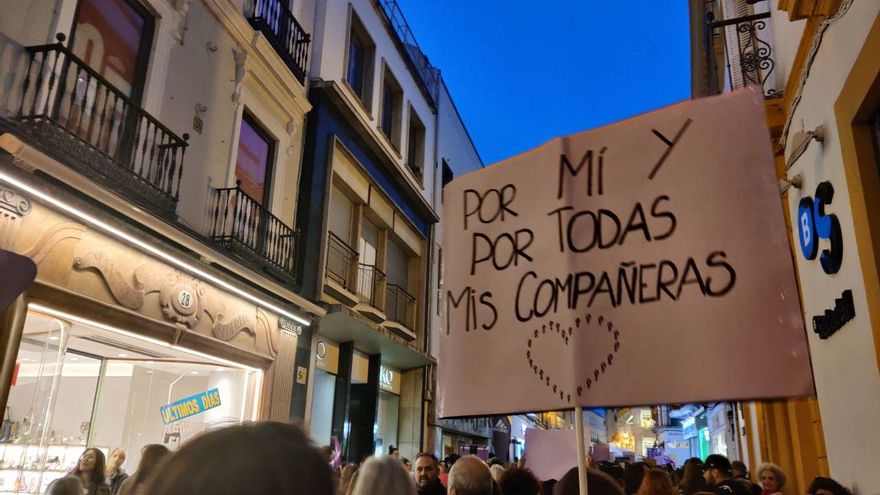 POR MÍ Y
POR TODAS
MIS COMPAÑERAS
BS
28
ÚLTIMOS DÍAS
KO